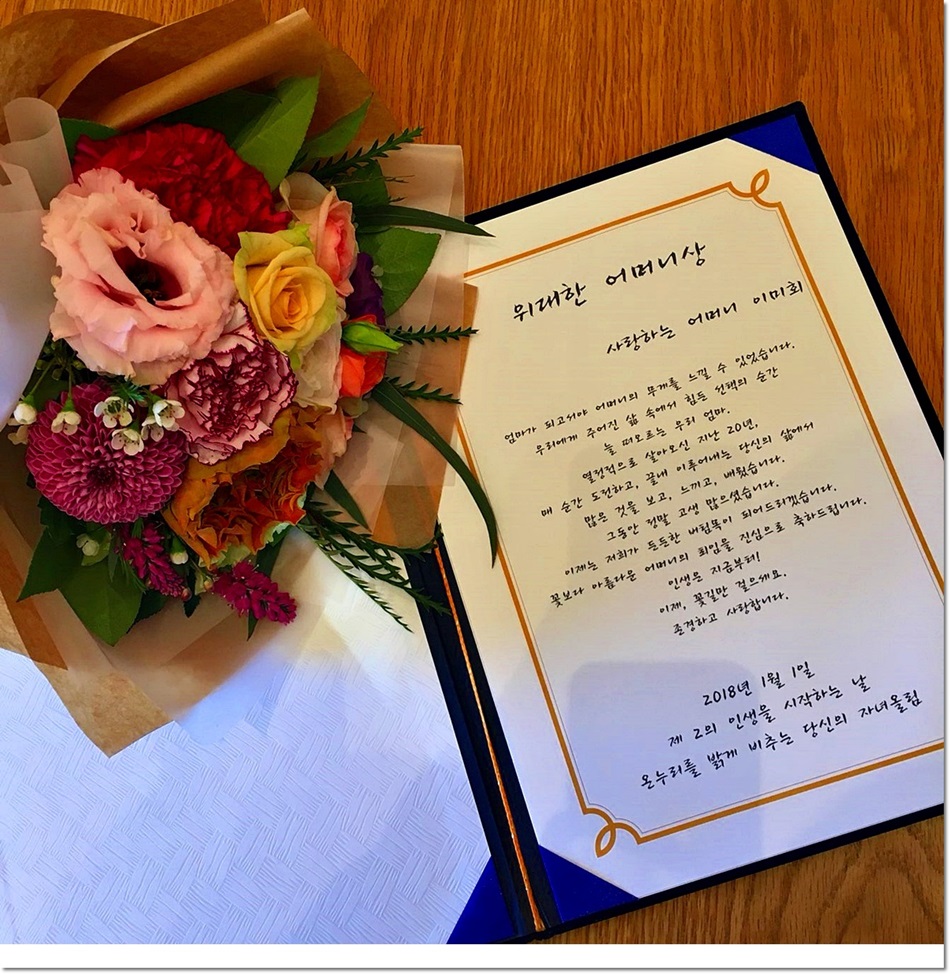 위대한 어머니상
사랑하는 어머니 이미희
엄마가 되고서야 어머니의 무게를 느낄 수 있었습니다.
우리에게 주어진 삶 속에서 힘든 선택의 순간
늘 떠오르는 우리 엄마.
열정적으로 살아오신 지난 20년,
매 순간 도전하고, 끝내 이루어내는 당신의 삶에서
많은 것을 보고, 느끼고, 배웠습니다.
그동안 정말 고생 많으셨습니다.
이제는 저희가 든든한 버팀목이 되어드리겠습니다.
꽃보다 아름다운 어머니의 퇴임을 진심으로 축하드립니다.
인생은 지금부터!
이제, 꽃길만 걸으세요.
존경하고 사랑합니다.
2018년 1월 1일
제 2의 인생을 시작하는 날
온누리를 밝게 비추는 당신의 자녀올림